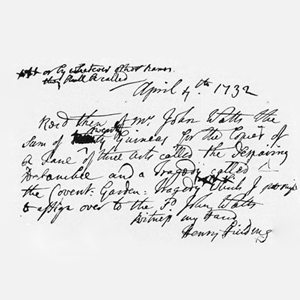 or by whatever other name
they shall be called
April 4th 1732
Recd then of Mr. John Watts the
Sum of twenty Guineas for the Copies of
a Farce of three Acts called the despairing
Debauchee and a Tragedy called
the Covent: Garden: Tragedy which I
to assign over to the Sd John Watts
Witness my hand
Henry Fielding